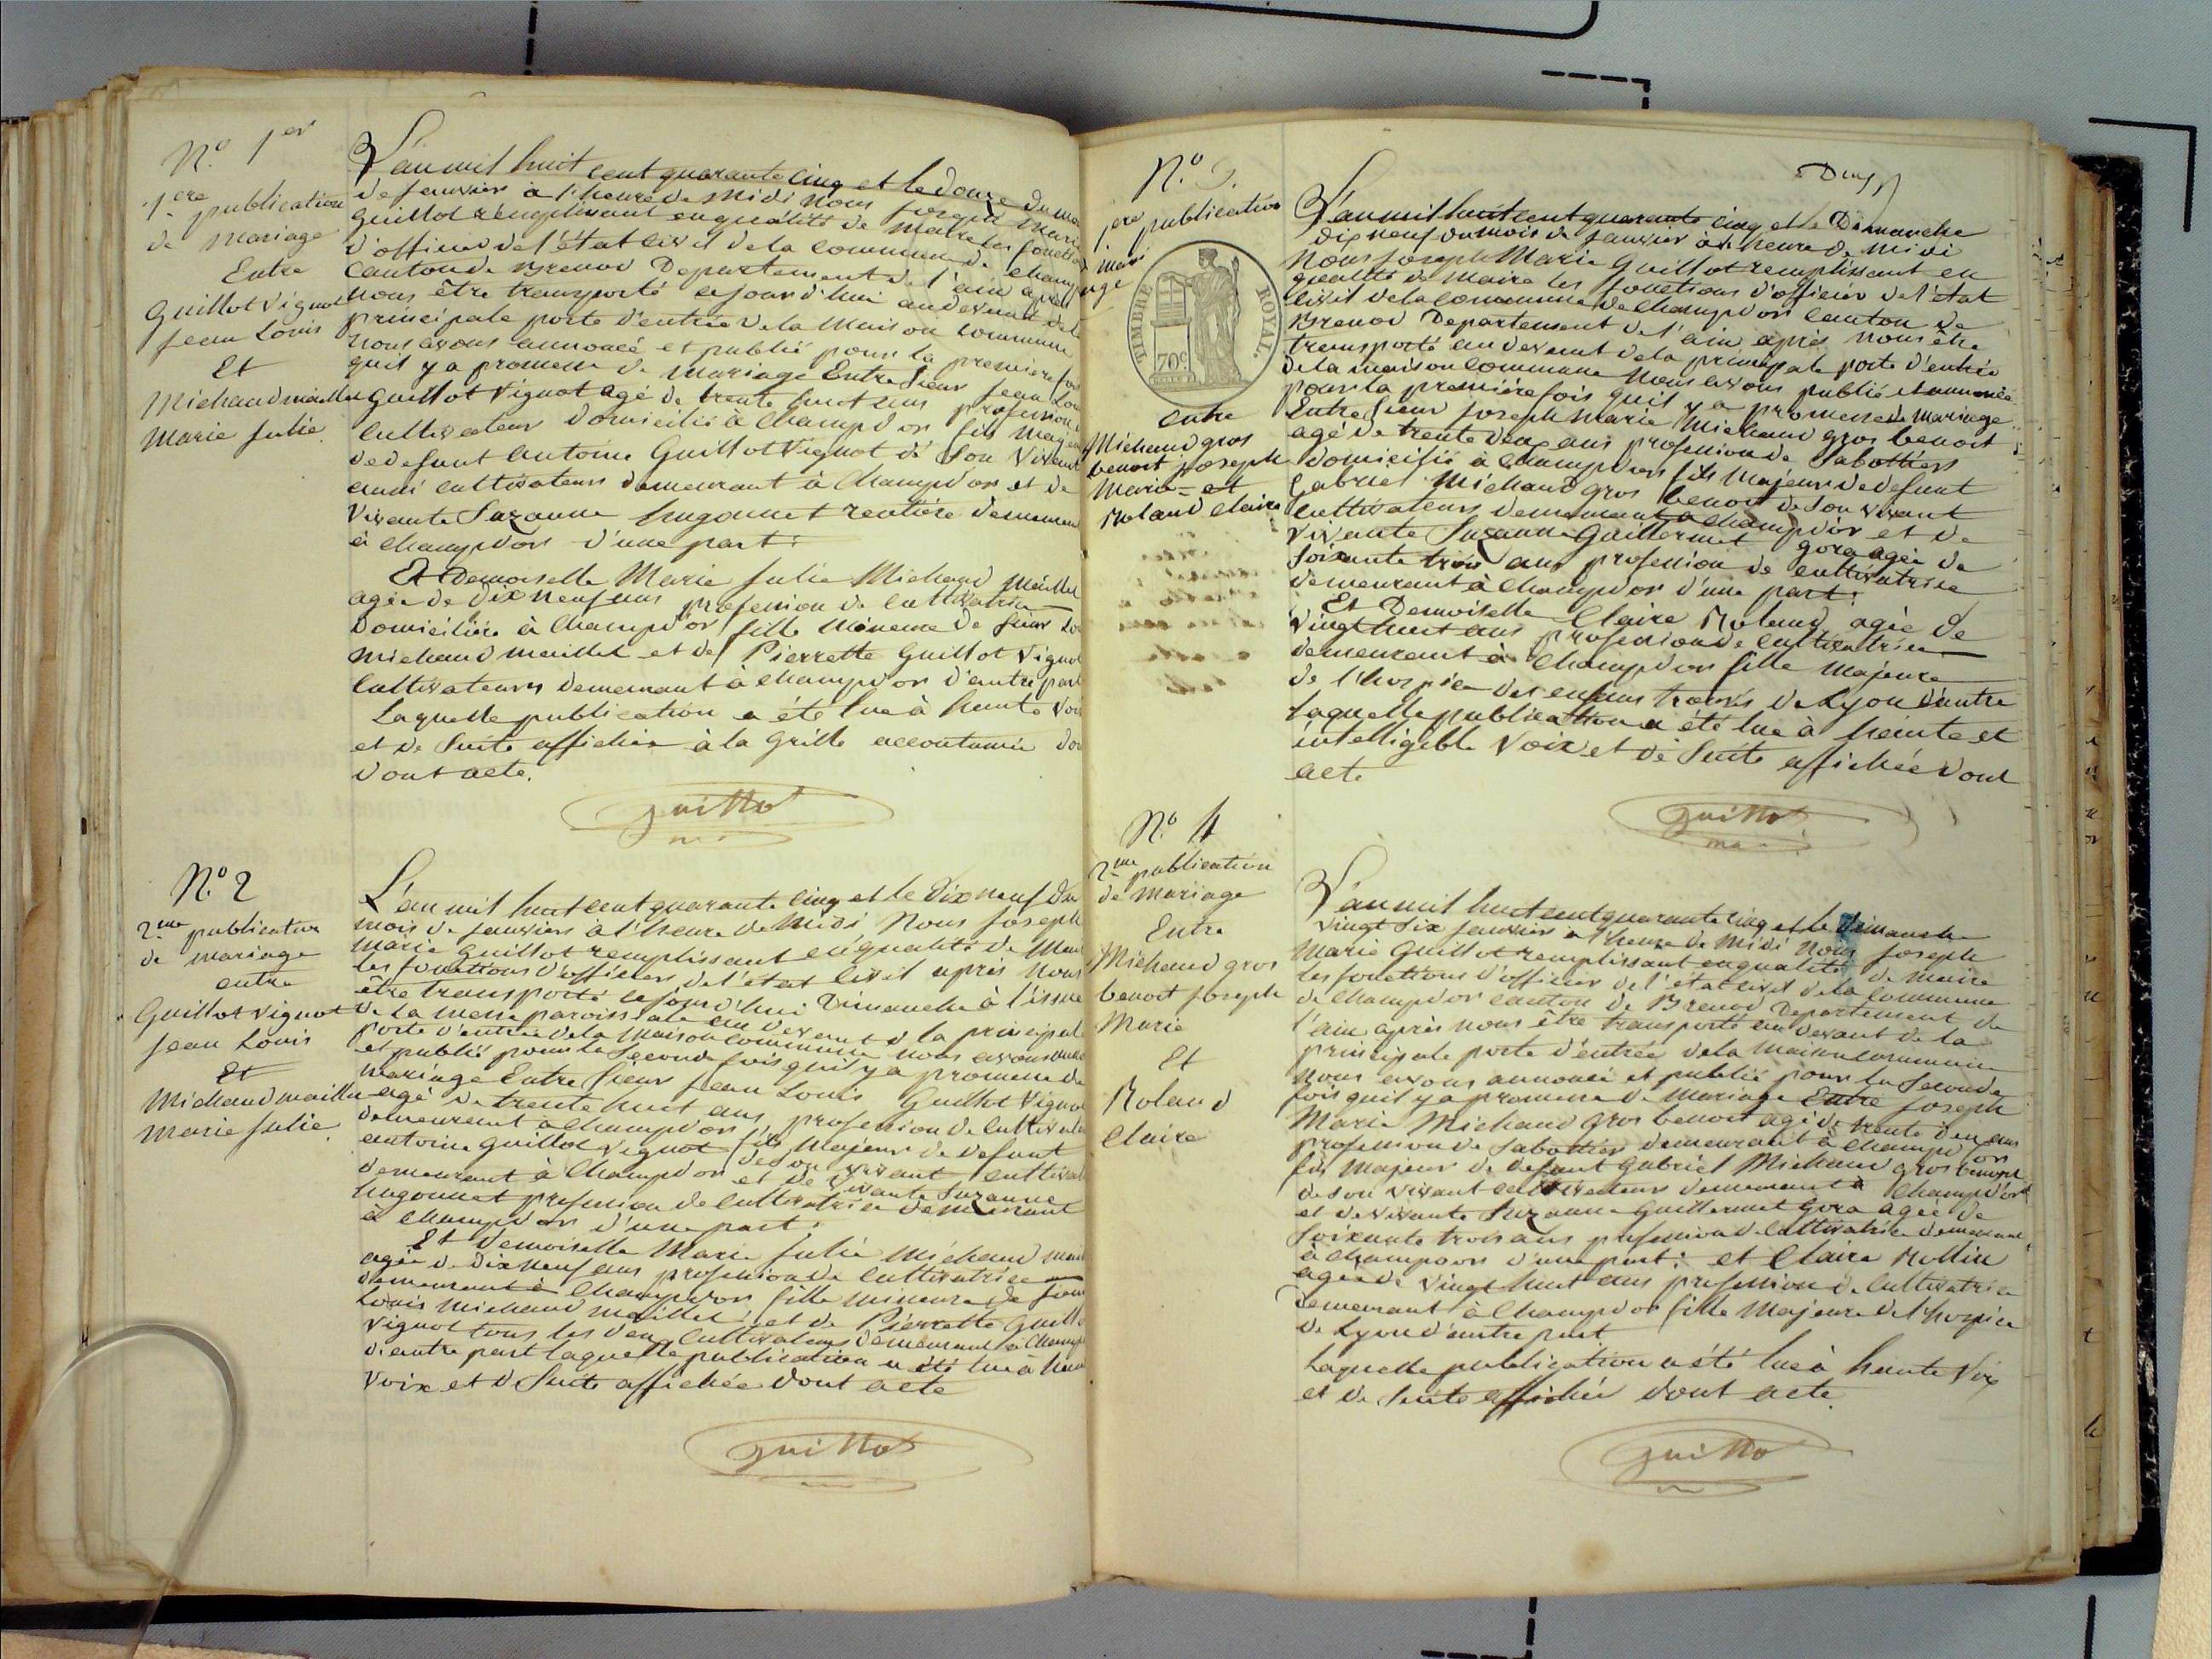 N.o 1er
1ere publication
de mariage
Entre
Guillot Vignot
Jean Louis
Et
Michaud maillet
Marie Julie
L'an mil huit cent quarante cinq et le douze du mois
de janvier à l'heure de midi Nous Joseph Marie
Guillot remplissant en qualité de Maire les fonctions
d'officier de l'état civil de la commune de Champdor
canton de Brenod Departement de l'ain après
nous être transporté cejourd'hui au devant de la
principale porte d'entrée de la Maison commune
nous avons annoncé et publié pour la premiere fois
quil y a promesse de mariage Entre Sieur Jean Louis
Guillot Vignot agé de trente huit ans profession
cultivateur domicilié à Champdor fils Majeur
de defunt Antoine Guillot Vignot de Son Vivant
aussi cultivateur demeurant à Champdor et de
Vivante Suzanne hugonnet rentière demeurant
à Champdor d'une part :
Et Demoiselle Marie Julie Michaud Maillet
agée de dix neuf ans profession de cultivatrice
domiciliée à Champdor fille Mineure de Sieur Louis
Michaud maillet et de Pierrette Guillot Vignot
Cultivateurs demeurant à Champdor d'autre part
Laquelle publication a été lue à haute Voix
et de Suite affichée à la Grille accoutumée
dont acte.
Guillot
N.o 2
2me publication
de mariage
entre
Guillot Vignot
Jean Louis
Et
Michaud maillet
Marie Julie
L'an mil huit cent quarante cinq et le dix neuf du
mois de janvier à l'heure de Midi Nous Joseph
Marie Guillot remplissant en qualité de Maire
les fonctions d'officier de l'état civil après nous
être transporté cejourd'hui dimanche à l'issue
de la messe paroissiale au devant d la principale
porte d'entrée de la Maison commune nous avons
et publié pour la Seconde fois quil y a promesse de
mariage Entre Sieur Jean Louis Guillot Vignot
agé de trente huit ans profession de Cultivateur
demeurant à Champdor fils Majeur de defunt
antoine Guillot Vignot de son vivant cultivateur
demeurant à Champdor et de vivante Suzanne
hugonnet profession de Cultivatrice demeurant
à Champdor d'une part :
Et demoiselle Marie Julie Michaud maillet
agée de dix neuf ans profession de cultivatrice
demeurant à Champdor fille mineure de Sieur
Louis Michaud maillet et de Pierrette Guillot
Vignot tous les deux Cultivateurs demeurant à Champdor
d'autre part laquelle publication a été lue à haute
Voix et de Suite affichée dont acte
Guillot
N.o 3.
1ere publication
mariage
TIMBRE ROYAL.
70c.
entre
Michaud gros
benoit Joseph
Marie = et
Roland Claire
Deux
L'an mil huit cent quarante cinq et le Dimanche
dix neuf du mois de janvier à l'heure de midi
Nous Joseph Marie Guillot remplissant en
qualité de maire les fonctions d'officier de l'état
civil de la commune de Champdor canton de
Brenod Departement de l'ain après nous être
transporté au devant de la principale porte d'entrée
de la maison commune Nous avons publié et annoncé
pour la première fois quil y a promesse de mariage
Entre Sieur Joseph Marie Michaud gros benoit
agé de trente deux ans profession de Sabottier
domicilié à Champdor fils Majeur de defunt
Gabriel Michaud gros benoit de Son vivant
Cultivateur demeurant à Champdor et de
vivante Suzanne Guillermet gora agée de
Soixante trois ans profession de cultivatrice
demeurant à Champdor d'une part :
Et Demoiselle Claire Roland agée de
Vingt huit ans profession de cultivatrice
demeurant à Champdor fille Majeure
de l'hospice des enfans trouvés de Lyon d'autre
laquelle publication a été lue à haute et
intelligible Voix et de Suite affichée dont
acte
Guillot
N.o 4
2me publication
de mariage
Entre
Michaud gros
benoit Joseph
Marie
Et
Roland
Claire
L'an mil huit cent quarante cinq et le dimanche
vingt Six janvier à l'heure de Midi Nous Joseph
Marie Guillot remplissant en qualité de maire
les fonctions d'officier de l'état civil de la Commune
de Champdor canton de Brenod Departement de
l'ain après nous être transporté au devant de la
principale porte d'entrée de la Maison commune
Nous avons annoncé et publié pour la Seconde
fois quil y a promesse de Mariage Entre Joseph
Marie Michaud gros benoit agé de trente deux ans
profession de Sabottier demeurant à Champdor
fils Majeur de defunt Gabriel Michaud gros benoit
de son vivant cultivateur demeurant à Champdor
et de vivante Suzanne Guillermet gora agée de
Soixante trois ans profession de Cultivatrice demeurant
à Champdor d'une part : et Claire Rollin
agée de Vingt huit ans profession de Cultivatrice
demeurant à Champdor fille Majeure de l'hospice
de Lyon d'autre part
Laquelle publication a été lue à haute Voix
et de Suite affichée dont acte.
Guillot